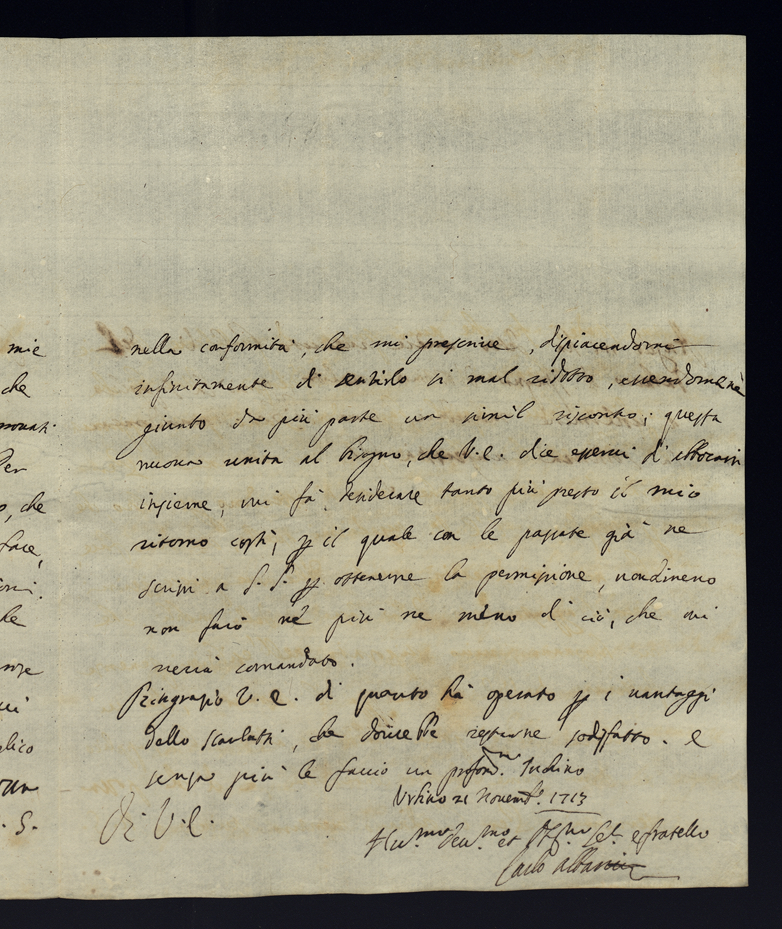 mie
che
Per
o, che
face,
che
lico
. S.
nella conformità, che mi prescrive, dispiacendomi
infinitamente di sentirlo sì mal ridotto, essendomene
giunto da più parte un simil riscontro; questa
nuova unita al bisogno, che V. E. dice esservi di abboccarsi
insieme, mi fà desiderare tanto più presto il mio
ritorno costì, p il quale con le passate già ne
scrissi a S. S. p ottenerne la permissione, nondimeno
non farò nè più ne meno di ciò, che mi
verrà comandato.
Ringrazio V. E. di quanto hà operato p i vantaggi
dello Scarlatti, che dovrebbe restarne sodisfatto. e
senza più le faccio un profond.mo Inchino
Urbino 21 Novemb. 1713
Di V. E.
Hu.mo Dev.mo et Obl.mo Se.e e fratello
Carlo Albani